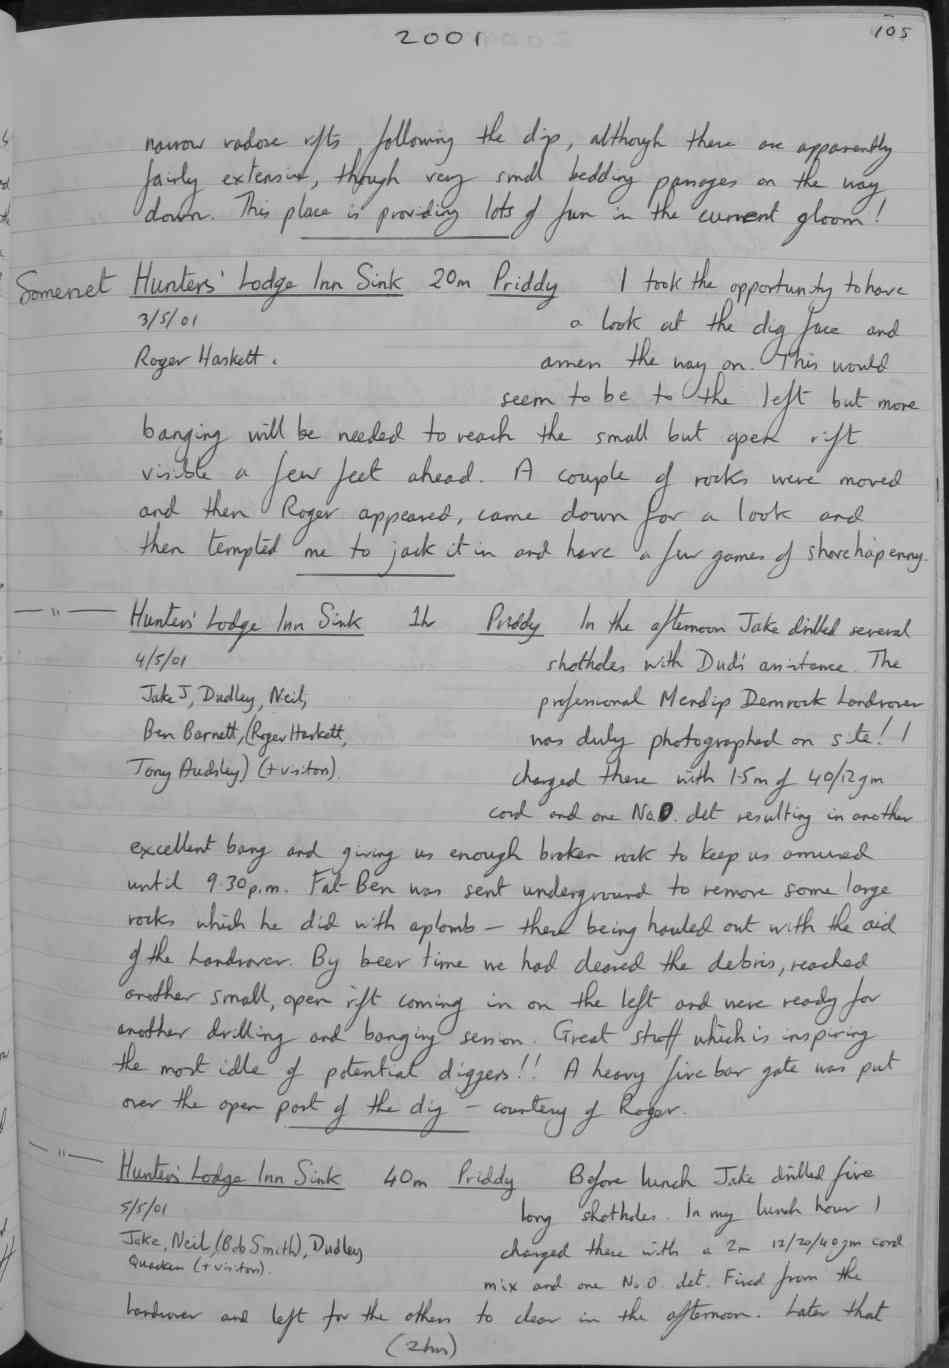 2001
105
narrow vadose rifts following the dip, although there are apparently
fairly extensive, though very small bedding passages on the way
down. This place is providing lots of fun in the current gloom!
Somerset Hunters' Lodge Inn Sink 20m Priddy I took the opportunity to have
3/5/01 a look at the dig face and
Roger Haskett. assess the way on. This would
seem to be to the left but more
banging will be needed to reach the small but open rift
visible a few feet ahead. A couple of rocks were moved
and then Roger appeared, came down for a look and
then tempted me to jack it in and have a few games of shove ha'penny.
—"— Hunters' Lodge Inn Sink 1hr Priddy In the afternoon Jake drilled several
4/5/01 shotholes with Dud's assistance. The
Jake J, Dudley, Neil, professional Mendip Demrock Landrover
Ben Barnett, (Roger Haskett, was duly photographed on site! I
Tony Audsley) (+ visitors). charged these with 1.5m of 40/12gm
cord and one No.0. det resulting in another
excellent bang and giving us enough broken rock to keep us amused
until 9.30p.m. Fat Ben was sent underground to remove some large
rocks which he did with aplomb – these being hauled out with the aid
of the Landrover. By beer time we had cleared the debris, reached
another small, open rift coming in on the left and were ready for
another drilling and banging session. Great stuff which is inspiring
the most idle of potential diggers!! A heavy five bar gate was put
over the open part of the dig – courtesy of Roger.
—"— Hunters' Lodge Inn Sink 40m Priddy Before lunch Jake drilled five
5/5/01 long shotholes. In my lunch hour I
Jake, Neil, (Bob Smith), Dudley charged these with a 2m 12/20/40gm cord
Quackers (+ visitors). mix and one No.0. det. Fired from the
Landrover and left for the others to clear in the afternoon. Later that
(2hrs)